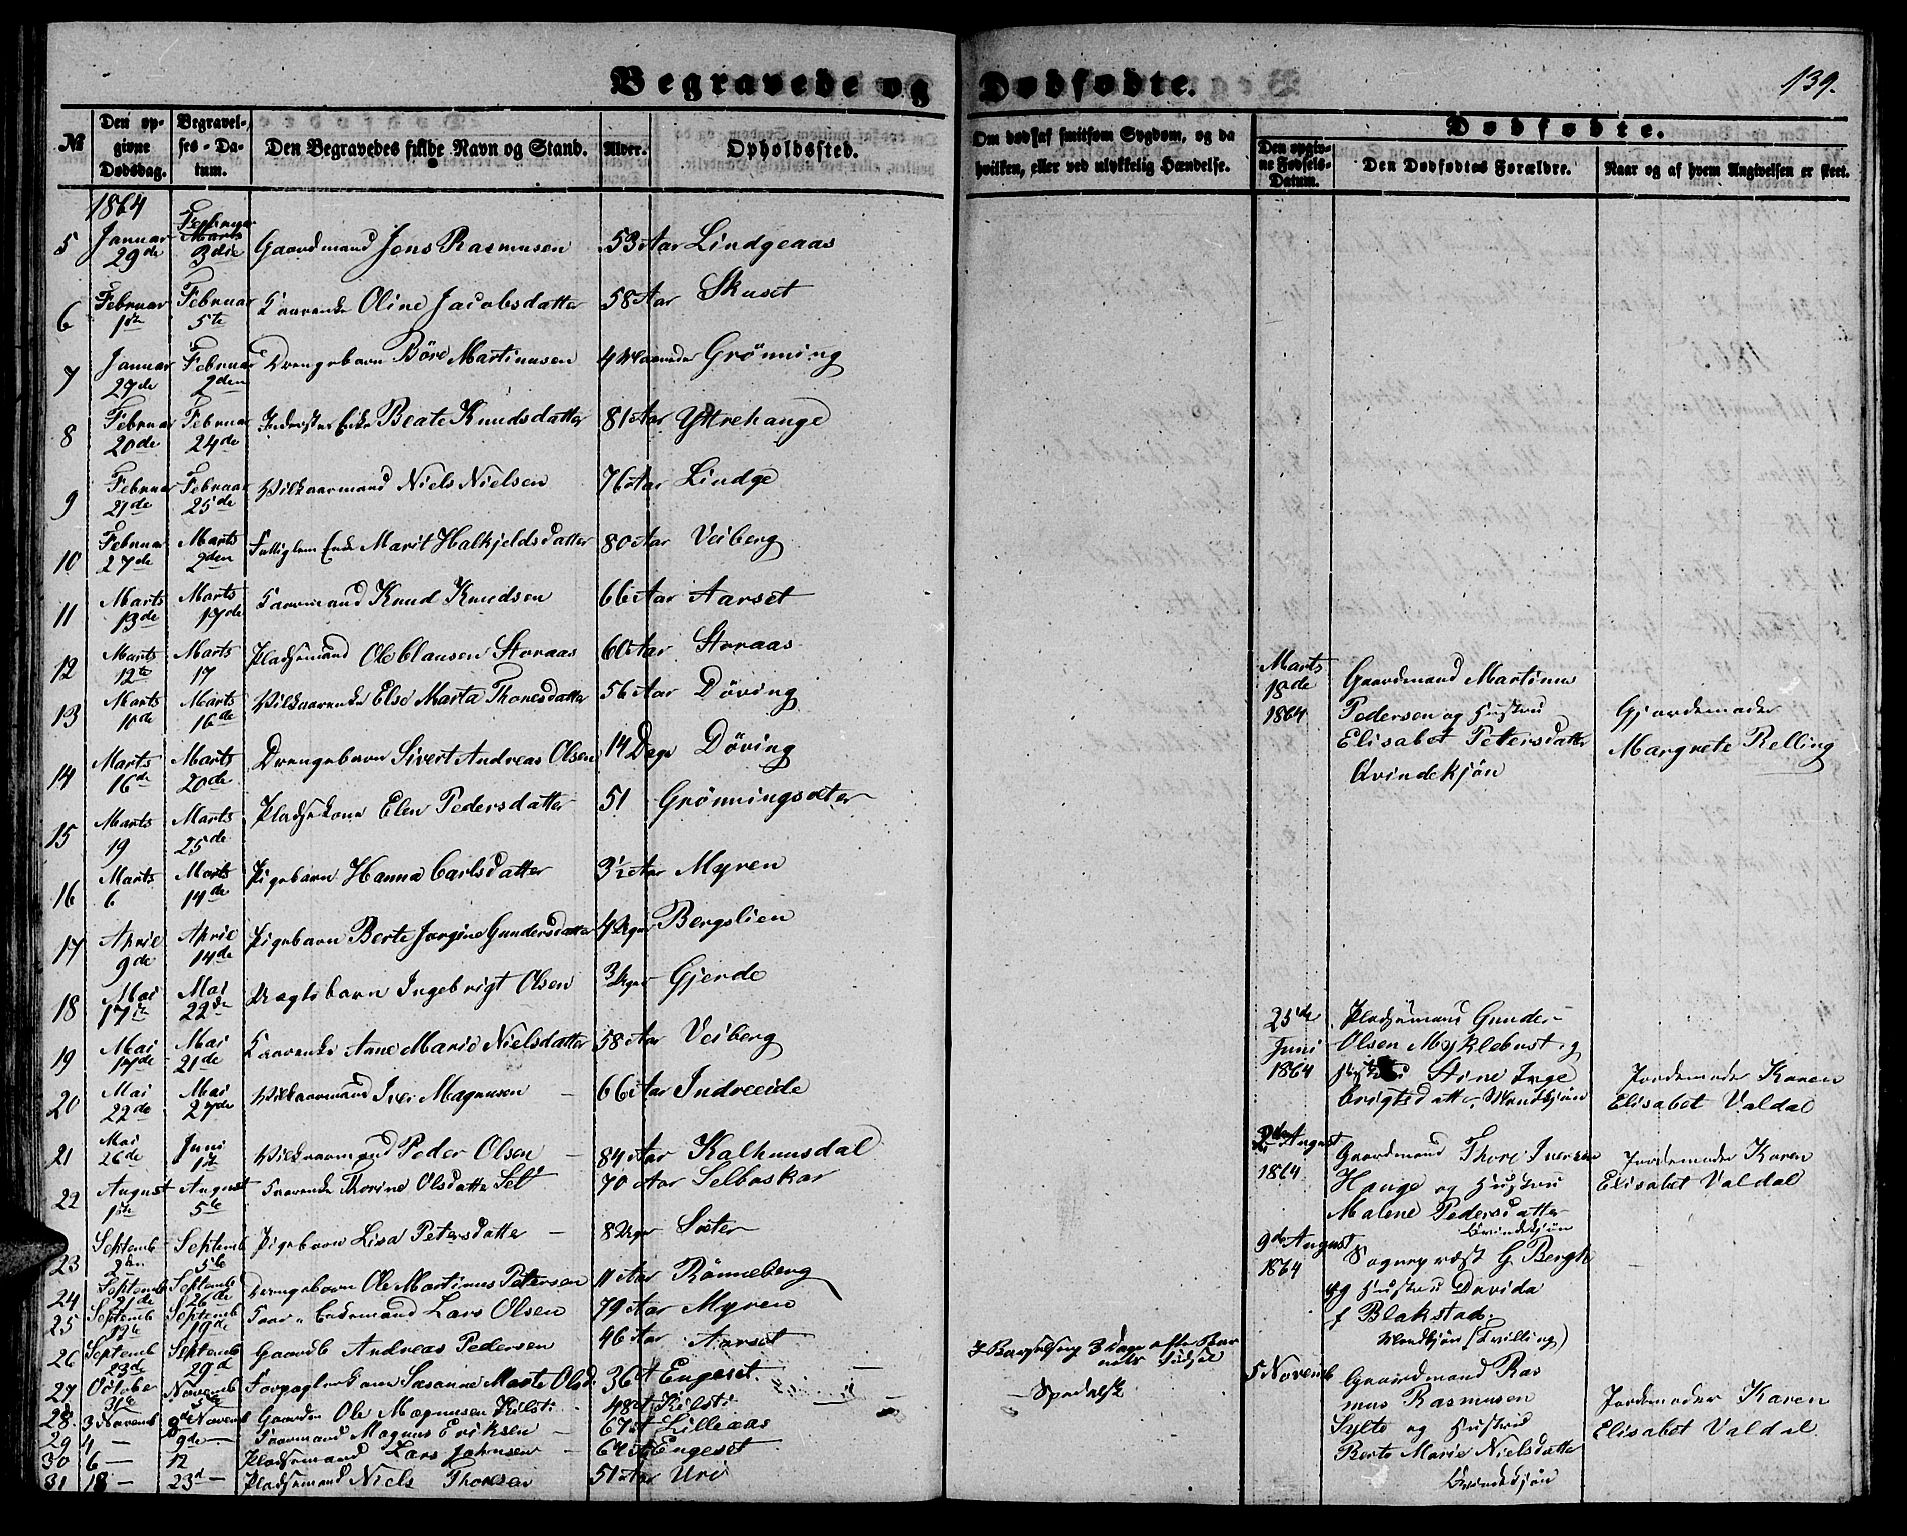 Begravede og Dødfødte.
139.
№ Den opgivne Dødsdag. Begravelses-Datum. Den Begravedes fulde Navn og Stand. Alder. Opholdssted. Om dødsfaldet
Om dødsf. af smitsom Sygdom, og da hvilken, eller ved ulykkelig Hændelse.
Dødfødte.
Den opgivne Fødsels-Datum. Den Dødfødtes Forældre. Naar og af hvem Angivelsen er skeet.
1864
5 Januar 29de Februar Marts 3die Gaardmand Jens Rasmusen 53 Aar Lindgeaas
6 Februar 1ste Februar 5te Kaarenke Oline Jacobsdatter 58 Aar Skuset
7 Januar 27de Februar 2den Drengebarn Böre Martinusen 4 Maaneder Grönning
8 Februar 20de Februar 24de Inderster Enke Beate Knudsdatter 81 Aar Yttrehauge
9 Februar 21de Februar 25de Vilkaarmand Niels Nielsen 76 Aar Lindge
10 Februar 27de Marts 2den Fattiglem Enke Marit Halkjeldsdatter 80 Aar Veiberg
11 Marts 13de Marts 17de Kaarmand Knud Knudsen 66 Aar Aarset
12 Marts 12te Marts 17 Pladsemand Ole Clausen Storaas 60 Aar Storaas
13 Marts 10de Marts 16de Vilkaarenke Else Marta Thoresdatter 56 Aar Döving
14 Marts 16de Marts 20de Drengebarn Sivert Andreas Olsen 14 Dage Döving
15 Marts 19 Marts 25de Pladsekone Elen Pedersdatter 51 Grönningsæter
16 Marts 6 Marts 14de Pigebarn Hanna Carlsdatter 3½ Aar Myren
17 April 9de April 14de Pigebarn Berte Jorgine Gundersdatter 4 Uger Bergslien
18 Mai 17de Mai 22de Uægtebarn Ingebrigt Olsen 3 Uger Gjerde
19 Mai 14de Mai 21de Kaarenke Anne Marie Nielsdatter 58 Aar Veiberg
20 Mai 22de Mai 27de Vilkaarmand Iver Magnusen 66 Aar Indreeide
21 Mai 26de Juni 1ste Vilkaarmand Peder Olsen 84 Aar Kalhunsdal
22 August 1ste August 5te Kaarenke Thorine Olsdatter Selb 70 Aar Selboskar
23 Septemb 2den Septemb 5te Pigebarn Lisa Petersdatter 8 Uger Sæter
24 Septemb 21de Septemb 26de Drengebarn Ole Martinus Petersen 11 Aar Rönneberg
25 Septemb 12te Septemb 19de Kaar- Enkemand Lars Olsen 79 Aar Myren
26 Septemb 23de Septemb 29d Gaardb Andreas Pedersen 46 Aar Aarset
27 Octobe 31te Novemb 5te Forpagterkone Susanne Marte Olsd. 36 A Engeset I Barselseng 3 Dage efter Barnets Födsel
28. 3 Novemb 9de Novemb Gaardm Ole Magnusen Kilsti 48 A Kilsti Spedalsk
29 4 — 9de — Kaarmand Magnus Eriksen 67 A Lilleaas
30 6 — 12 Pladsemand Lars Johnsen 64 A Engeset
31 18 — 23d — Pladsemand Niels Thoresen 51 Aar Uri
Marts 18de 1864 Gaardmand Martinus
Pedersen og Hustru
Elisabet Petersdatter
Qvindekjön
Gjordemoder
Margrete Relling
25de Juni 1864 Pladsemand Gunder
Olsen Myklebust og
Hustru Stine Inge
brigtsdatter, Mandkjön
Jordemoder Karen
Elisabet Valdal
2den August 1864 Gaardmand Thore Iversen
Hauge og Hustru
Malene Pedersdatter
Qvindekjön
Jordemoder Karen
Elisabet Valdal
9de August 1864 Sognepræst G. Bergh
og Hustru Davida
f Blakstad.
Mandkjön (Tvilling)
5 Novemb Gaardmand Ras
mus Rasmusen
Sylte og Hustru
Berte Marie Nielsdatter
Qvindekjön
Jordemoder Karen
Elisabet Valdal